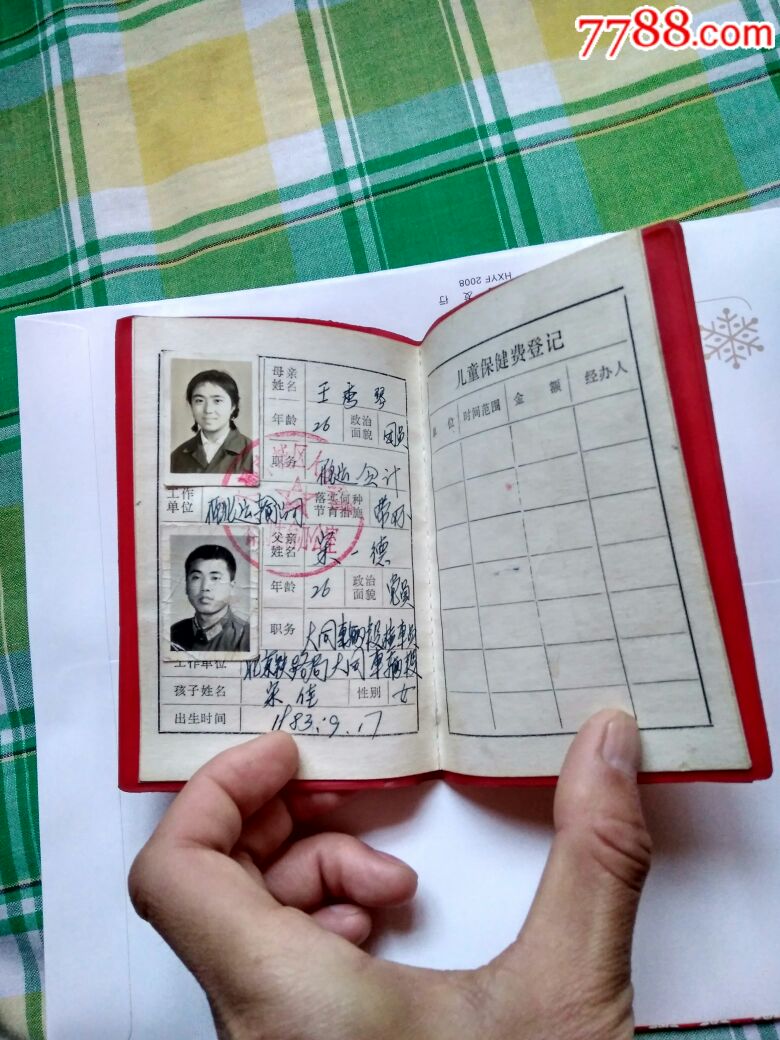 7788.com
HXYF 2008
发行
母亲姓名 王秀琴
年龄 26 政治面貌 团员
职务 会计
工作单位 运输公司 落实何种节育措施 带环
父亲姓名 一德
年龄 26 政治面貌 党员
职务 大同车辆段检车员
工作单位 北京铁路局大同车辆段
孩子姓名 佳 性别 女
出生时间 1983.9.17
儿童保健费登记
单位 时间范围 金额 经办人